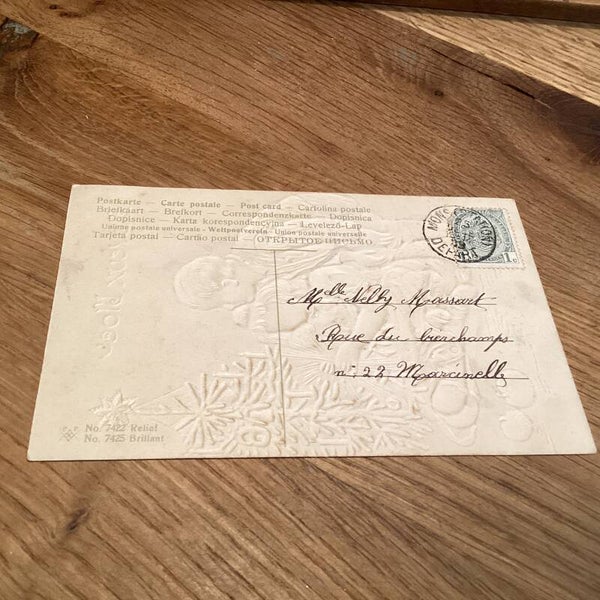 Postkarte — Carte postale — Post card — Cartolina postale
Briefkaart — Brefkort — Correspondenzkarte — Dopisnica
Dopisnice — Karta korespondencyjna — Levelező-Lap
Union postale universelle - Weltpostverein - Unión postal universelle
Tarjeta postal — Cartão postal — ОТКРЫТОЕ ПИСЬМО
MONS
DEPART
1
Mlle Nelly Massart
Rue du
n° 22 Marcinelle
No. 7422 Relief
No. 7425 Brillant